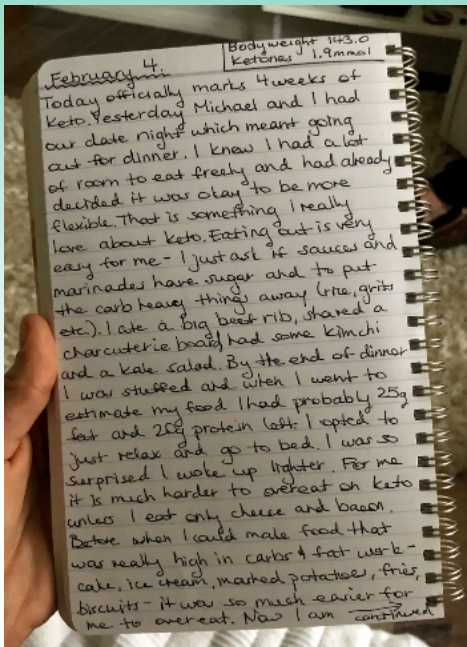 Bodyweight 143.0
Ketones 1.9mmol
February 4.
Today officially marks 4 weeks of
keto. Yesterday Michael and I had
our date night which meant going
out for dinner. I knew I had a lot
of room to eat freely and had already
decided it was okay to be more
flexible. That is something I really
love about keto. Eating out is very
easy for me - I just ask if sauces and
marinades have sugar and to put
the carb heavy things away (rice, grits
etc). I ate a big beef rib, shared a
charcuterie board, had some kimchi
and a kale salad. By the end of dinner
I was stuffed and when I went to
estimate my food I had probably 25g
fat and 20g protein left. I opted to
just relax and go to bed. I was so
surprised I woke up lighter. For me
it is much harder to overeat on keto
unless I eat only cheese and bacon.
Before when I could make food that
was really high in carbs & fat work -
cake, ice cream, mashed potatoes, fries,
biscuits - it was so much easier for
me to overeat. Now I am continued